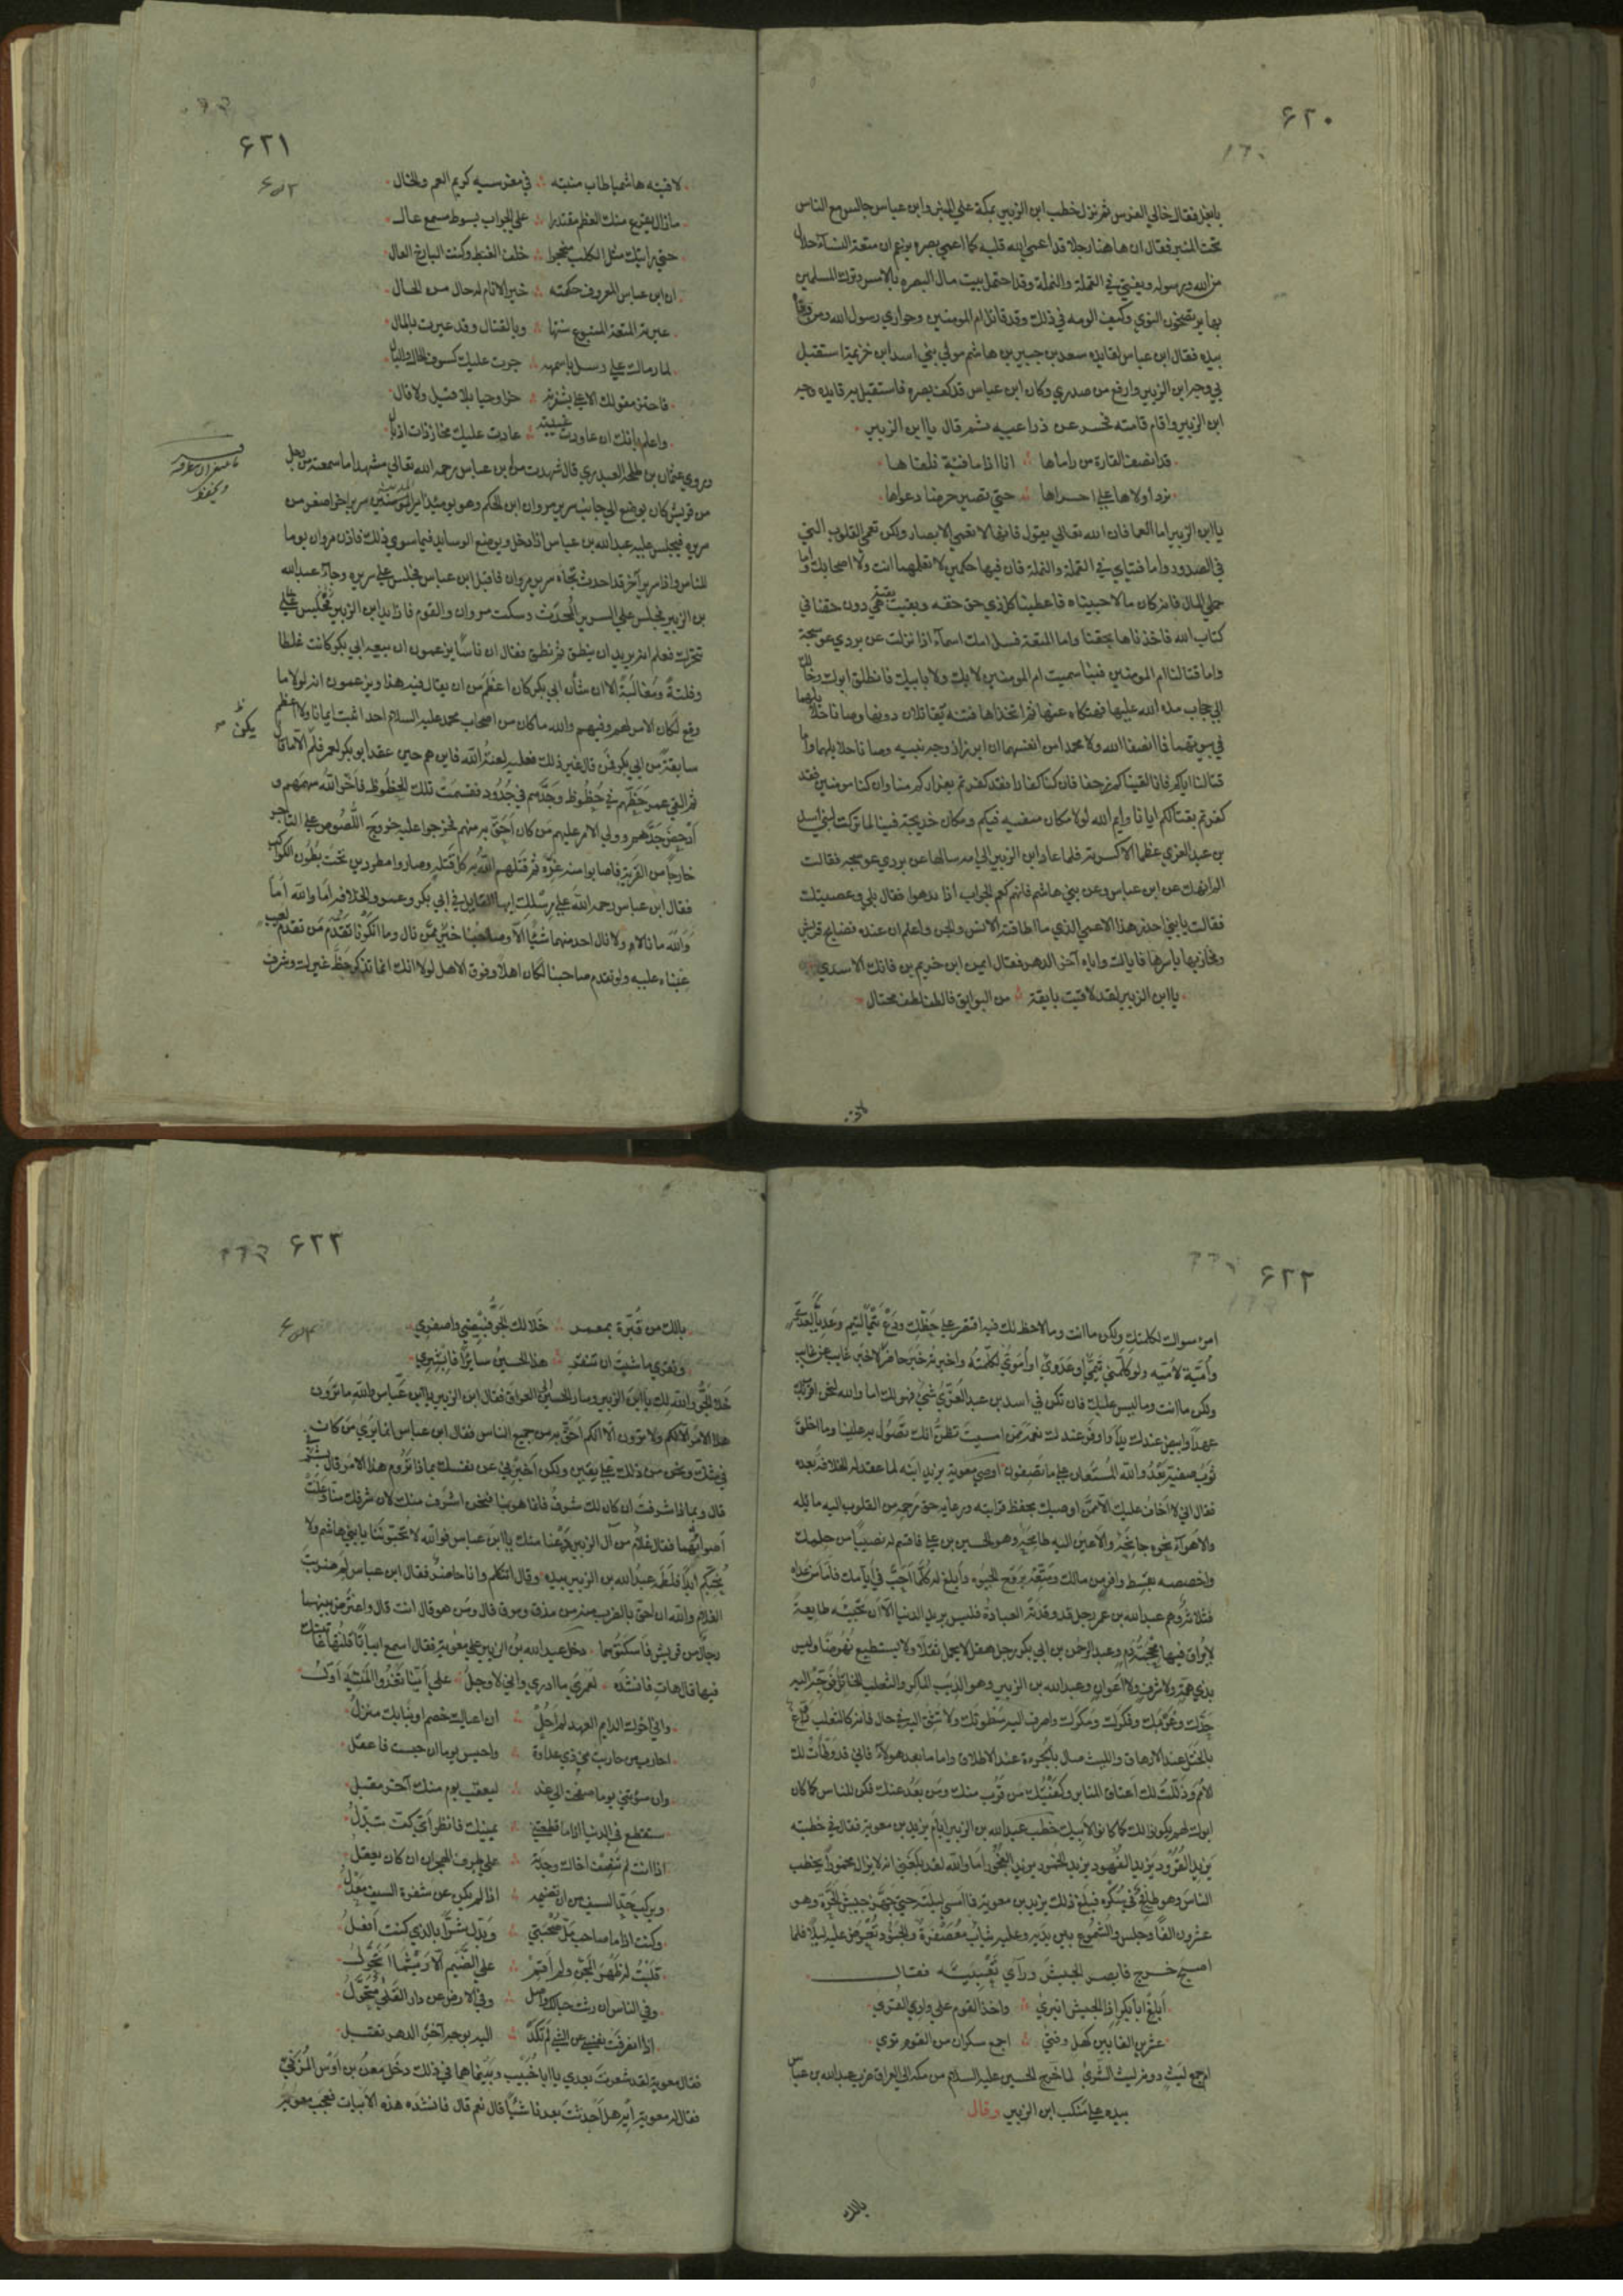 ٦٢٠
يا بغل فقال خالي الفرس ثم نزل خطب ابن الزبير بمكة علي المنبر وابن عباس جالس مع الناس
تحت المنبر فقال ان هاهنا رجلا قد اعمي الله قلبه كما اعمي بصره يزعم ان متعة النسآء حلال
من الله ورسوله ويفتي في القملة والنملة وقد احتمل بيت مال البصره بالامس وترك المسلمين
بها يرتضخون النوي وكيف الومه في ذلك وقد قاتل ام المومنين وحواري رسول الله ومن وقاه
بيده فقال ابن عباس لقايده سعد بن جبير بن هاشم مولي بني اسد ابن خزيمة استقبل
بي وجه ابن الزبير وارفع من صدري وكان ابن عباس قد كف بصره فاستقبل به قايده وجه
ابن الزبير واقام قامته فحسر عن ذراعيه ثم قال يا ابن الزبير
قد انصف القارة من راماها انا اذا ما فئة نلقاها
نرد اولاها علي اخراها حتي تصير حرضا دعواها
يا ابن الزبير اما العما فان الله تعالي يقول فانها لا تعمي الابصار ولكن تعمي القلوب التي
في الصدور واما فتياي في القملة والنملة فان فيها حكمين لا تعلمهما انت ولا اصحابك واما
حملي المال فانه كان مالا جبيناه فاعطينا كل ذي حق حقه وبقيت بقية هي دون حقنا في
كتاب الله فاخذناها بحقنا واما المتعة فسل امك اسمآء اذا نزلت عن بردي عوسجة
واما قتالنا ام المومنين فبنا سميت ام المومنين لا بك ولا بابيك فانطلق ابوك وخالك
الي حجاب مده الله عليها فهتكاه عنها ثم اتخذاها فتنة يقاتلان دونها وصانا حلايلهما
في بيوتهما فما انصفا الله ولا محمدا من انفسهما ان ابرزا زوجه نبيه وصانا حلايلهما واما
قتالنا اياكم فانا لقيناكم زحفا فان كنا كفارا فقد كفرتم بفراركم منا وان كنا مومنين فقد
كفرتم بقتالكم ايانا وايم الله لولا مكان صفيه فيكم ومكان خديجة فينا لما تركت لبني اسد
بن عبد العزي عظما الا كسرته فلما عاد ابن الزبير الي امه سالها عن بردي عوسجه فقالت
الم انهك عن ابن عباس وعن بني هاشم فانهم كعم الجواب اذا بدهوا فقال بلي وعصيتك
فقالت يا بني احذر هذا الاعمي الذي ما اطاقته الانس والجن واعلم ان عنده فضايح قريش
ومخازيها باسرها فاياك واياه آخر الدهر فقال ايمن ابن خريم بن فاتك الاسدي
يا ابن الزبير لقد لاقيت بايقة من البوايق فالطف لطف محتال
لاقيته
٦٢١
لاقيته هاشميا طاب منبته في مغرسيه كريم العم والخال
ما زال يقرع منك العظم مقتدرا علي الجواب بسوط مسمع عال
حتي رايتك مثل الكلب منجحرا خلف الغبيط وكنت الباذخ العال
ان ابن عباس المعروف حكمته خير الانام له حال من الحال
عيرته المتعة المتبوع سنتها وبالقتال وقد عيرت بالمال
لما رماك علي رسل باسهمه جرت عليك كسوف الحال والبال
فاحتز مقولك الاعلي بشفرته حزا وحيا بلا قيل ولا قال
واعلم بانك ان عاودت غيبته عادت عليك مخاز ذات اذيال
وروي عثمان بن طلحه العبدري قال شهدت من ابن عباس رحمه الله تعالي مشهدا ما سمعته من رجل
من قريش كان يوضع الي جانب سرير مروان ابن الحكم وهو يومئذ امير المدينة سرير اخر اصغر من
سريره فيجلس عليه عبد الله بن عباس اذا دخل ويوضع الوسايد فيما سوي ذلك فاذن مروان يوما
للناس واذا سرير آخر قد احدث تجاه سرير مروان فاقبل ابن عباس فجلس علي سريره وجآء عبد الله
بن الزبير فجلس علي السرير المحدث وسكت مروان والقوم فاذا يد ابن الزبير
تتحرك فعلم انه يريد ان ينطق ثم نطق فقال ان ناسا يزعمون ان بيعه ابي بكر كانت غلطا
وفلتة ومغالبة الا ان شأن ابي بكر كان اعظم من ان يقال فيه هذا ويزعمون انه لولا ما
وقع لكان الامر لهم وفيهم والله ما كان من اصحاب محمد عليه السلام احد اثبت ايمانا ولا اعظم
سابقة من ابي بكر فمن قال غير ذلك فعليه لعنة الله فاين هم حين عقد ابو بكر لعمر فلم يكن الا ما قال
ثم القي عمر حظهم في حظوظ وجدهم في جدود فقسمت تلك الحظوظ فاخر الله سهمهم و
ادحض جدهم وولي الامر عليهم من كان احق به منهم فخرجوا عليه خروج اللصوص علي التاجر
خارجا من القرية فاصابوا منه غرة ثم قتلهم الله به كل قتله وصاروا مطرودين تحت بطون الكواكب
فقال ابن عباس رحمه الله علي رسلك ايها القايل في ابي بكر وعمر والخلافه اما والله اما
والله ما نالا ولا نال احد منهما شئا الا وصاحبنا خير ممن نال وما انكرنا تقدم من تقدم لعيب
عبناه عليه ولو تقدم صاحبنا لكان اهلا وفوق الاهل لولا انك انما تذكر حظ غيرك وشرف
٦٢٢
امرئ سواك لكلمتك ولكن ما انت وما لاحظ لك فيه اقتصر علي حظك ودع تيما لتيم وعديا لعدي
وامية لامية ولو كلمني تيمي او عدوي او اموي لكلمته واخبرته خبر حاضر لا خبر غايب عن غايب
ولكن ما انت وما ليس عليك فان تكن في اسد بن عبد العزي شئ فهو لك اما والله لنحن اقرب بك
عهدا وابيض عندك يدا واوفر عندك نعمة ممن امسيت تظن انك تصول به علينا وما اخلق
ثوب صفية بعد والله المستعان علي ما تصفون اوصي معوية يزيد ابنه لما عقد له الخلافة بعده
فقال اني لا اخاف عليك الا ممن اوصيك بحفظ قرابته ورعاية حق رحمه من القلوب اليه مائله
والاهوآء نحوه جانحة والاعين اليه طامحة وهو الحسين بن علي فاقسم له نصيبا من حلمك
واخصصه بقسط وافر من مالك ومتعه بروح الحيوه وابلغ له كلما احب في ايامك فاما من عداه
فثلاثة وهم عبد الله بن عمر رجل قد وقذته العبادة فليس يريد الدنيا الا ان تجيئه طايعة
لا يراق فيها محجمة دم وعبد الرحمن بن ابي بكر رجل هقل لا يحمل ثقلا ولا يستطيع نهوضا وليس
بذي همة ولا شرف ولا اعوان وعبد الله بن الزبير وهو الذيب الماكر والثعلب الخاتل فوجه اليه
جدك وعزمك وفكرك ومكرك واصرف اليه سطوتك ولا تثق اليه في حال فانه كالثعلب راغ
بالختل عند الارهاق والليث صال بالجرءة عند الاطلاق واما ما بعد هولآء فاني قد وطأت لك
الامم وذللت لك اعناق المنابر وكفيتك من قرب منك ومن بعد عنك فكن للناس كما كان
ابوك لهم يكونوا لك كما كانوا لابيك خطب عبد الله بن الزبير ايام يزيد بن معوية فقال في خطبته
يزيد القرود يزيد الفهود يزيد الخمور يزيد الفجور اما والله لقد بلغني انه لا يزال مخمورا يخطب
الناس وهو طافح في سكره فبلغ ذلك يزيد بن معوية فما امسي ليلته حتي جهز جيش الحرة وهو
عشرون الفا وجلس والشموع بين يديه وعليه ثياب معصفرة والجنود تعرض عليه ليلا فلما
اصبح خرج فابصر الجيش وراي تعبيته فقال
ابلغ ابا بكر اذا الجيش انبري واخذ القوم علي وادي القري
عشرين الفا بين كهل وفتي اجمع سكران من القوم تري
ام جمع ليث دونه ليث الشري لما خرج الحسين عليه السلام من مكه الي العراق ضرب عبد الله بن عباس
بيده علي منكب ابن الزبير وقال
يالك
٦٢٣
يالك من قبرة بمعمر خلا لك الجو فبيضي واصفري
ونقري ما شئت ان تنقري هذا الحسين سايرا فابشري
خلا الجو والله لك يا ابن الزبير وسار الحسين الي العراق فقال ابن الزبير يا ابن عباس والله ما ترون
هذا الامر الا لكم ولا ترون الا انكم احق به من جميع الناس فقال ابن عباس انما يري من كان
في شك ونحن من ذلك علي يقين ولكن اخبرني عن نفسك بماذا تروم هذا الامر قال بشرفي
قال وبماذا شرفت ان كان لك شرف فانما هو بنا فنحن اشرف منك لان شرفك منا وعلت
اصواتهما فقال غلام من آل الزبير دعنا منك يا ابن عباس فوالله لا تحبوننا يا بني هاشم ولا
نحبكم ابدا فلطمه عبد الله بن الزبير بيده وقال اتتكلم وانا حاضر فقال ابن عباس لم ضربت
الغلام والله ان احق بالضرب منه من مذق ومرق قال ومن هو قال انت قال واعترض بينهما
رجال من قريش فاسكتوهما دخل عبد الله بن الزبير علي معوية فقال اسمع ابياتا قلتها عاتبتك
فيها قال هات فانشده لعمري ما ادري واني لاوجل علي اينا تغدوا المنيه اول
واني اخوك الدايم العهد لم احل ان اعياك خصم او نبا بك منزل
احارب من حاربت من ذي عداوة واحبس يوما ان حبست فاعقل
وان سؤتني يوما صفحت الي غد ليعقب يوم منك آخر مقبل
ستقطع في الدنيا اذا ما قطعتني يمينك فانظر اي كف تبدل
اذا انت لم تنصف اخاك وجدته علي طرف الهجران ان كان يعقل
ويركب حد السيف من ان تضيمه اذا لم يكن عن شفرة السيف معدل
وكنت اذا ما صاحب مل صحبتي وبدل شرا بالذي كنت افعل
قلبت له ظهر المجن ولم اقم علي الضيم الا ريثما اتحول
وفي الناس ان رثت حبالك واصل وفي الارض عن دار القلي متحول
اذا انصرفت نفسي عن الشئ لم تكد اليه بوجه آخر الدهر تقبل
فقال معوية لقد شعرت بعدي يا ابا خبيب وبينما هما في ذلك دخل معن بن اوس المزني
فقال له معوية ايه هل احدثت بعدنا شيئا قال نعم قال فانشده هذه الابيات فعجب معوية